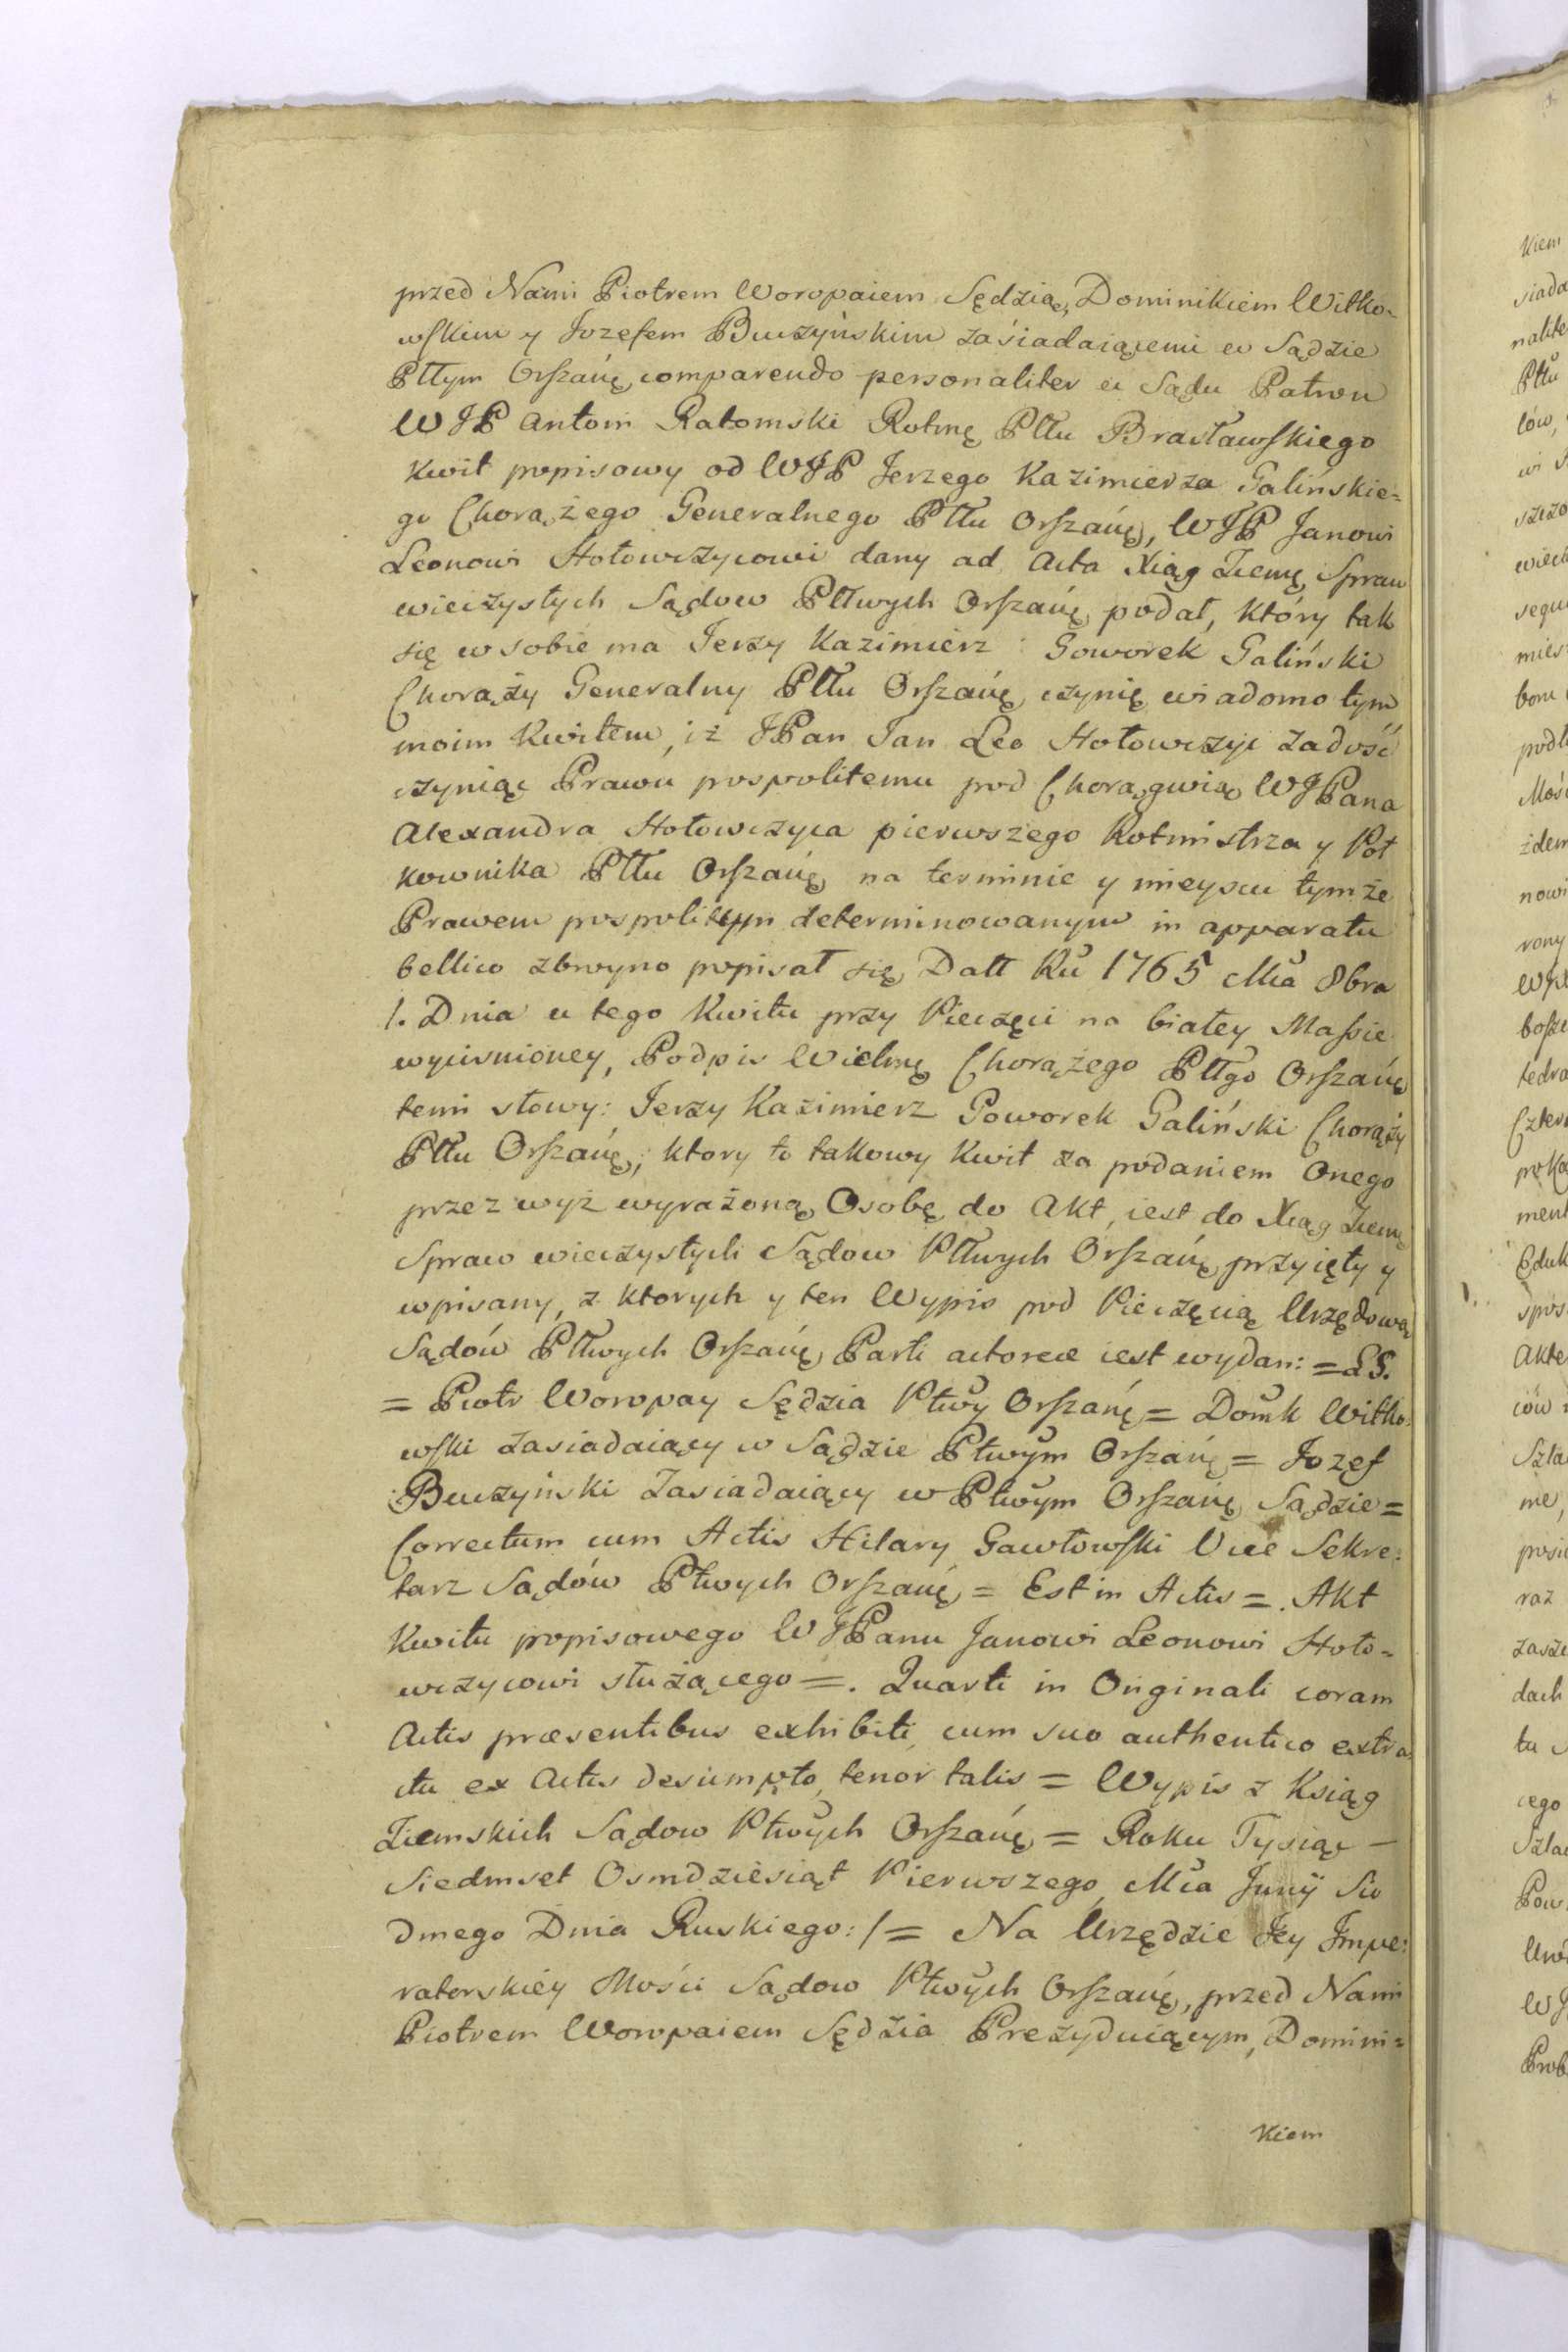 przed Nami Piotrem Woropaiem Sędzią, Dominikiem Witko-
wskim y Jozefem Buczyńskim zasiadaiącemi w Sądzie
Pttym Orszańę comparendo personaliter u Sądu Patron
WJP Antoni Ratomski Rotmę Pttu Brasławskiego
Kwit popisowy od WJP Jerzego Kazimierza Galińskie=
go Chorążego Generalnego Pttu Orszańę, WJP Janowi
Leonowi Hołowczycowi dany ad Acta Xiąg Ziemę Spraw
wieczystych Sądow Pttwych Orszańę podał, który tak
się w sobie ma Jerzy Kazimierz Goworek Galiński
Chorąży Generalny Pttu Orszańę, czynię wiadomo tym
moim Kwitem, iż JPan Jan Leo Hołowczyc zadość
czyniąc Prawu pospolitemu pod Chorągwią WJPana
Alexandra Hołowczyca pierwszego Rotmistrza y Poł
kownika Pttu Orszańę na terminie y mieyscu tymże
Prawem pospolitym determinowanym in apparatu
bellico zbroyno popisał się, Datt Ru 1765 Mca 8bra
1. Dnia u tego Kwitu przy Pieczęci na białey Massie
wyciśnioney, Podpis Wielmę Chorążego Pttgo Orszańę
temi słowy: Jerzy Kazimierz Goworek Galiński Chorąży
Pttu Orszańę; ktory to takowy Kwit za podaniem Onego
przez wyż wyrażoną Osobę do Akt, iest do Xiąg Ziemę
Spraw wieczystych Sądow Pttwych Orszańę przyięty y
wpisany, z ktorych y ten Wypis pod Pieczęcią Urzędową
Sądów Pttwych Orszańę Parti actoreæ iest wydan: = LS.
= Piotr Woropay Sędzia Ptwy Orszańę = Domk Witko:
wski zasiadaiący w Sądzie Ptwym Orszańę = Jozef
Buczyński Zasiadaiący w Ptwym Orszańę Sądzie =
Correctum cum Actis Hilary Gawłowski Vice Sekre:
tarz Sądów Ptwych Orszańę = Est in Actis =. Akt
Kwitu popisowego WJPanu Janowi Leonowi Hoło-
wczycowi służącego =. Quarti in Originali coram
Actis præsentibus exhibiti, cum suo authentico extra
ctu ex Actis desumpto, tenor talis = Wypis z Ksiąg
Ziemskich Sądow Ptwych Orszańę = Roku Tysiąc –
Siedmset Osmdziesiąt Pierwszego Mca Junij Sio
dmego Dnia Ruskiego: /= Na Urzędzie Jey Jmpe:
ratorskiéy Mości Sądow Ptwych Orszańę, przed Nami
Piotrem Woropaiem Sędzia Prezyduiącym, Domini=
Kiem